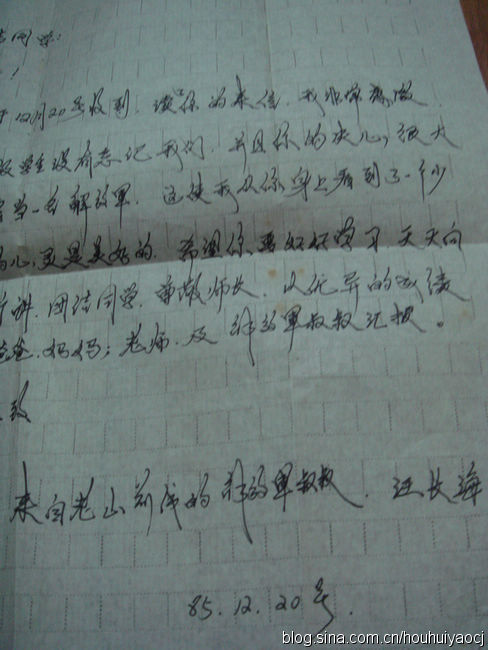 同学：
！
于12月20号收到，读你的来信，我非常感激
学生没有忘记我们，并且你的决心，很大
当一名解放军，这使我从你身上看到了一个少
的心，更是美好的。希望你要好好学习天天向
讲，团结同学，尊敬师长，以优异的成绩
爸爸、妈妈；老师、及解放军叔叔汇报。
致
来自老山前线的解放军叔叔，汪长海
85.12.20号.
blog.sina.com.cn/houhuiyaocj